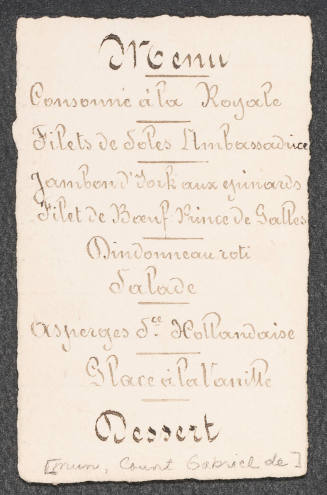 Menu
Consommé à la Royale
Filets de Soles l'Ambassadrice
Jambon d'York aux épinards
Filet de Bœuf Prince de Galles
Dindonneau roti
Salade
Asperges Sce Hollandaise
Glace à la Vanille
Dessert
Count Gabriel de]